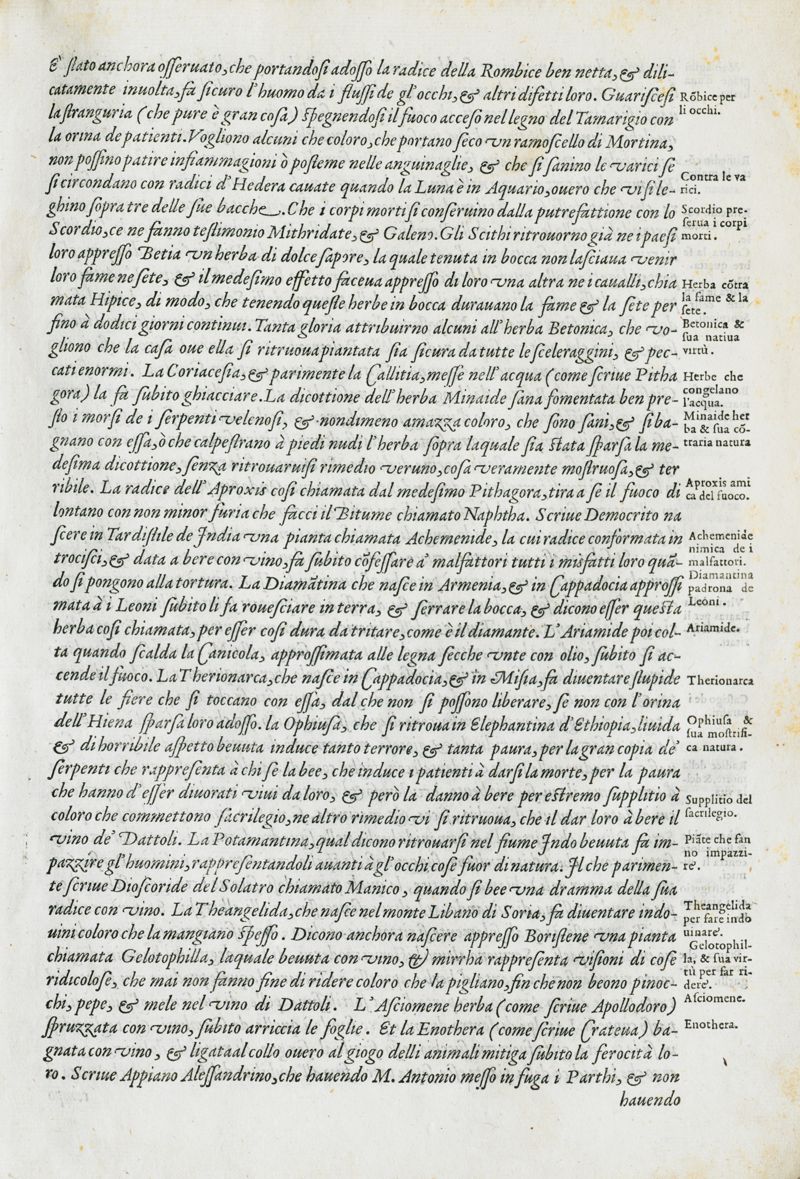 E' stato anchora osseruato, che portandosi adosso la radice della Rombice ben netta, & dili-
catamente inuolta, fa sicuro l'huomo da i flussi de gl'occhi, & altri difetti loro. Guariscesi
la stranguria (che pure è gran cosa) spegnendosi il fuoco acceso nel legno del Tamarigio con
la orina de patienti. Vogliono alcuni che coloro, che portano seco vn ramoscello di Mortina,
non possino patire infiammagioni ò posteme nelle anguinaglie, & che si sanino le varici se
si circondano con radici d'Hedera cauate quando la Luna è in Aquario, ouero che vi si le-
ghino sopra tre delle sue bacche. Che i corpi morti si conseruino dalla putrefattione con lo
Scordio, ce ne fanno testimonio Mithridate, & Galeno. Gli Scithi ritrouorno già ne i paesi
loro appresso Betia vn herba di dolce sapore, la quale tenuta in bocca non lasciaua venir
loro fame ne sete, & il medesimo effetto faceua appresso di loro vna altra ne i caualli, chia
mata Hipice, di modo, che tenendo queste herbe in bocca durauano la fame & la sete per
fino à dodici giorni continui. Tanta gloria attribuirno alcuni all'herba Betonica, che vo-
gliono che la casa oue ella si ritruoua piantata sia sicura da tutte le sceleraggini, & pec-
cati enormi. La Coriacesia, & parimente la Callitia, messe nell'acqua (come scriue Pitha
gora) la fa subito ghiacciare. La dicottione dell'herba Minaide sana fomentata ben pre-
sto i morsi de i serpenti velenosi, & nondimeno amazza coloro, che sono sani, & si ba-
gnano con essa, ò che calpestrano à piedi nudi l'herba sopra laquale sia stata sparsa la me-
desima dicottione, senza ritrouaruisi rimedio veruno, cosa veramente mostruosa, & ter
ribile. La radice dell'Aproxis cosi chiamata dal medesimo Pithagora, tira a se il fuoco di
lontano con non minor furia che facci il Bitume chiamato Naphtha. Scriue Democrito na
scere in Tardistile de India vna pianta chiamata Achemenide, la cui radice conformata in
trocisci, & data a bere con vino, fa subito cõfessare a' malfattori tutti i misfatti loro quã-
do si pongono alla tortura. La Diamãtina che nasce in Armenia, & in Cappadocia approssi
mata à i Leoni subito li fa rouesciare in terra, & serrare la bocca, & dicono esser questa
herba cosi chiamata, per esser cosi dura da tritare, come è il diamante. L'Ariamide poi col-
ta quando scalda la Canicola, approssimata alle legna secche vnte con olio, subito si ac-
cende il fuoco. La Therionarca, che nasce in Cappadocia, & in Misia, fa diuentare stupide
tutte le fiere che si toccano con essa, dal che non si possono liberare, se non con l'orina
dell'Hiena sparsa loro adosso. la Ophiusa, che si ritroua in Elephantina d'Ethiopia, liuida
& di horribile aspetto beuuta induce tanto terrore, & tanta paura, per la gran copia de'
serpenti che rappresenta à chi se la bee, che induce i patienti à darsi la morte, per la paura
che hanno d'esser diuorati viui da loro, & però la danno à bere per estremo supplitio à
coloro che commettono sacrilegio, ne altro rimedio vi si ritruoua, che il dar loro à bere il
vino de' Dattoli. La Potamantina, qual dicono ritrouarsi nel fiume Indo beuuta fa im-
pazzire gl'huomini, rappresentandoli auanti à gl'occhi cose fuor di natura. Il che parimen-
te scriue Dioscoride del Solatro chiamato Manico, quando si bee vna dramma della sua
radice con vino. La Theangelida, che nasce nel monte Libano di Soria, fa diuentare indo-
uini coloro che la mangiano spesso. Dicono anchora nascere appresso Boristene vna pianta
chiamata Gelotophilla, laquale beuuta con vino, & mirrha rappresenta visioni di cose
ridicolose, che mai non fanno fine di ridere coloro che la pigliano, fin che non beono pinoc-
chi, pepe, & mele nel vino di Dattoli. L'Asciomene herba (come scriue Apollodoro)
spruzzata con vino, subito arriccia le foglie. Et la Enothera (come scriue Crateua) ba-
gnata con vino, & ligata al collo ouero al giogo delli animali mitiga subito la ferocità lo-
ro. Scriue Appiano Alessandrino, che hauendo M. Antonio messo in fuga i Parthi, & non
hauendo
Rõbice per
li occhi.
Contra le va
rici.
Scordio pre-
serua i corpi
morti.
Herba cõtra
la fame & la
sete.
Betonica &
sua natiua
virtù.
Herbe che
congelano
l'acqua.
Minaide her
ba & sua cõ-
traria natura
Aproxis ami
ca del fuoco.
Achemenide
nimica de i
malfattori.
Diamantina
padrona de
Leoni.
Ariamide.
Therionarca
Ophiusa &
sua mostrifi-
ca natura.
Supplitio del
sacrilegio.
Piãte che fan
no impazzi-
re'.
Theangelida
per fare indo
uinare'.
Gelotophil-
la, & sua vir-
tù per far ri-
dere'.
Asciomene.
Enothera.